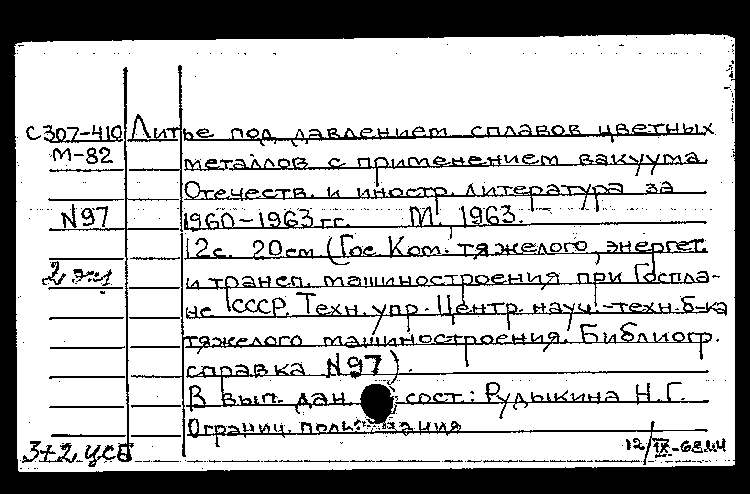 С307-410 Литье под давлением сплавов цветных
М-82 металлов с применением вакуума.
Отечеств. и иностр. литература за
N97 1960-1963 гг. М., 1963.
12с. 20см (Гос. Ком. тяжелого, энергет.
2 экз и трансп. машиностроения при Госпла-
не СССР. Техн. упр. Центр. науч.-техн. б-ка
тяжелого машиностроения. Библиогр.
справка N97).
В вып. дан. сост.: Рудыкина Н.Г.
Огранич. пользования
3+2 УСБ 12/IX-63